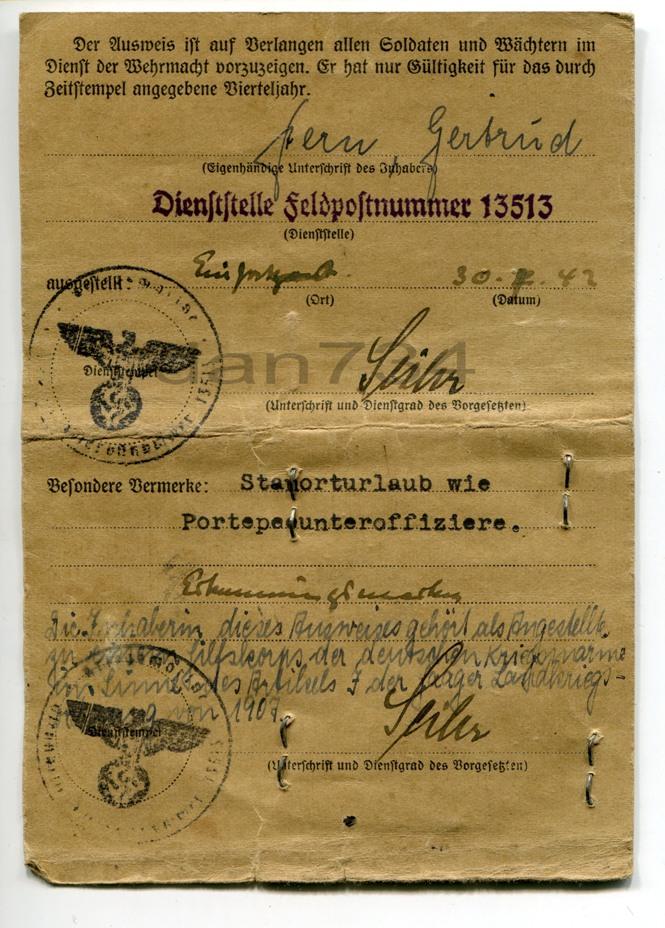 Der Ausweis ist auf Verlangen allen Soldaten und Wächtern im
Dienst der Wehrmacht vorzuzeigen. Er hat nur Gültigkeit für das durch
Zeitstempel angegebene Vierteljahr.
Gertrud
(Eigenhändige Unterschrift des Inhabers)
Dienststelle Feldpostnummer 13513
(Dienststelle)
ausgestellt: 30. 42
(Ort) (Datum)
Dienststempel
dan724
(Unterschrift und Dienstgrad des Vorgesetzten)
Besondere Vermerke: Standorturlaub wie
Portepeeunteroffiziere.
Die Inhaberin dieses Ausweises gehört als Angestellte
der deutschen Kriegsmarine
im Sinne des Artikels 3 der Haager Landkriegs-
von 1907.
Dienststempel
(Unterschrift und Dienstgrad des Vorgesetzten)